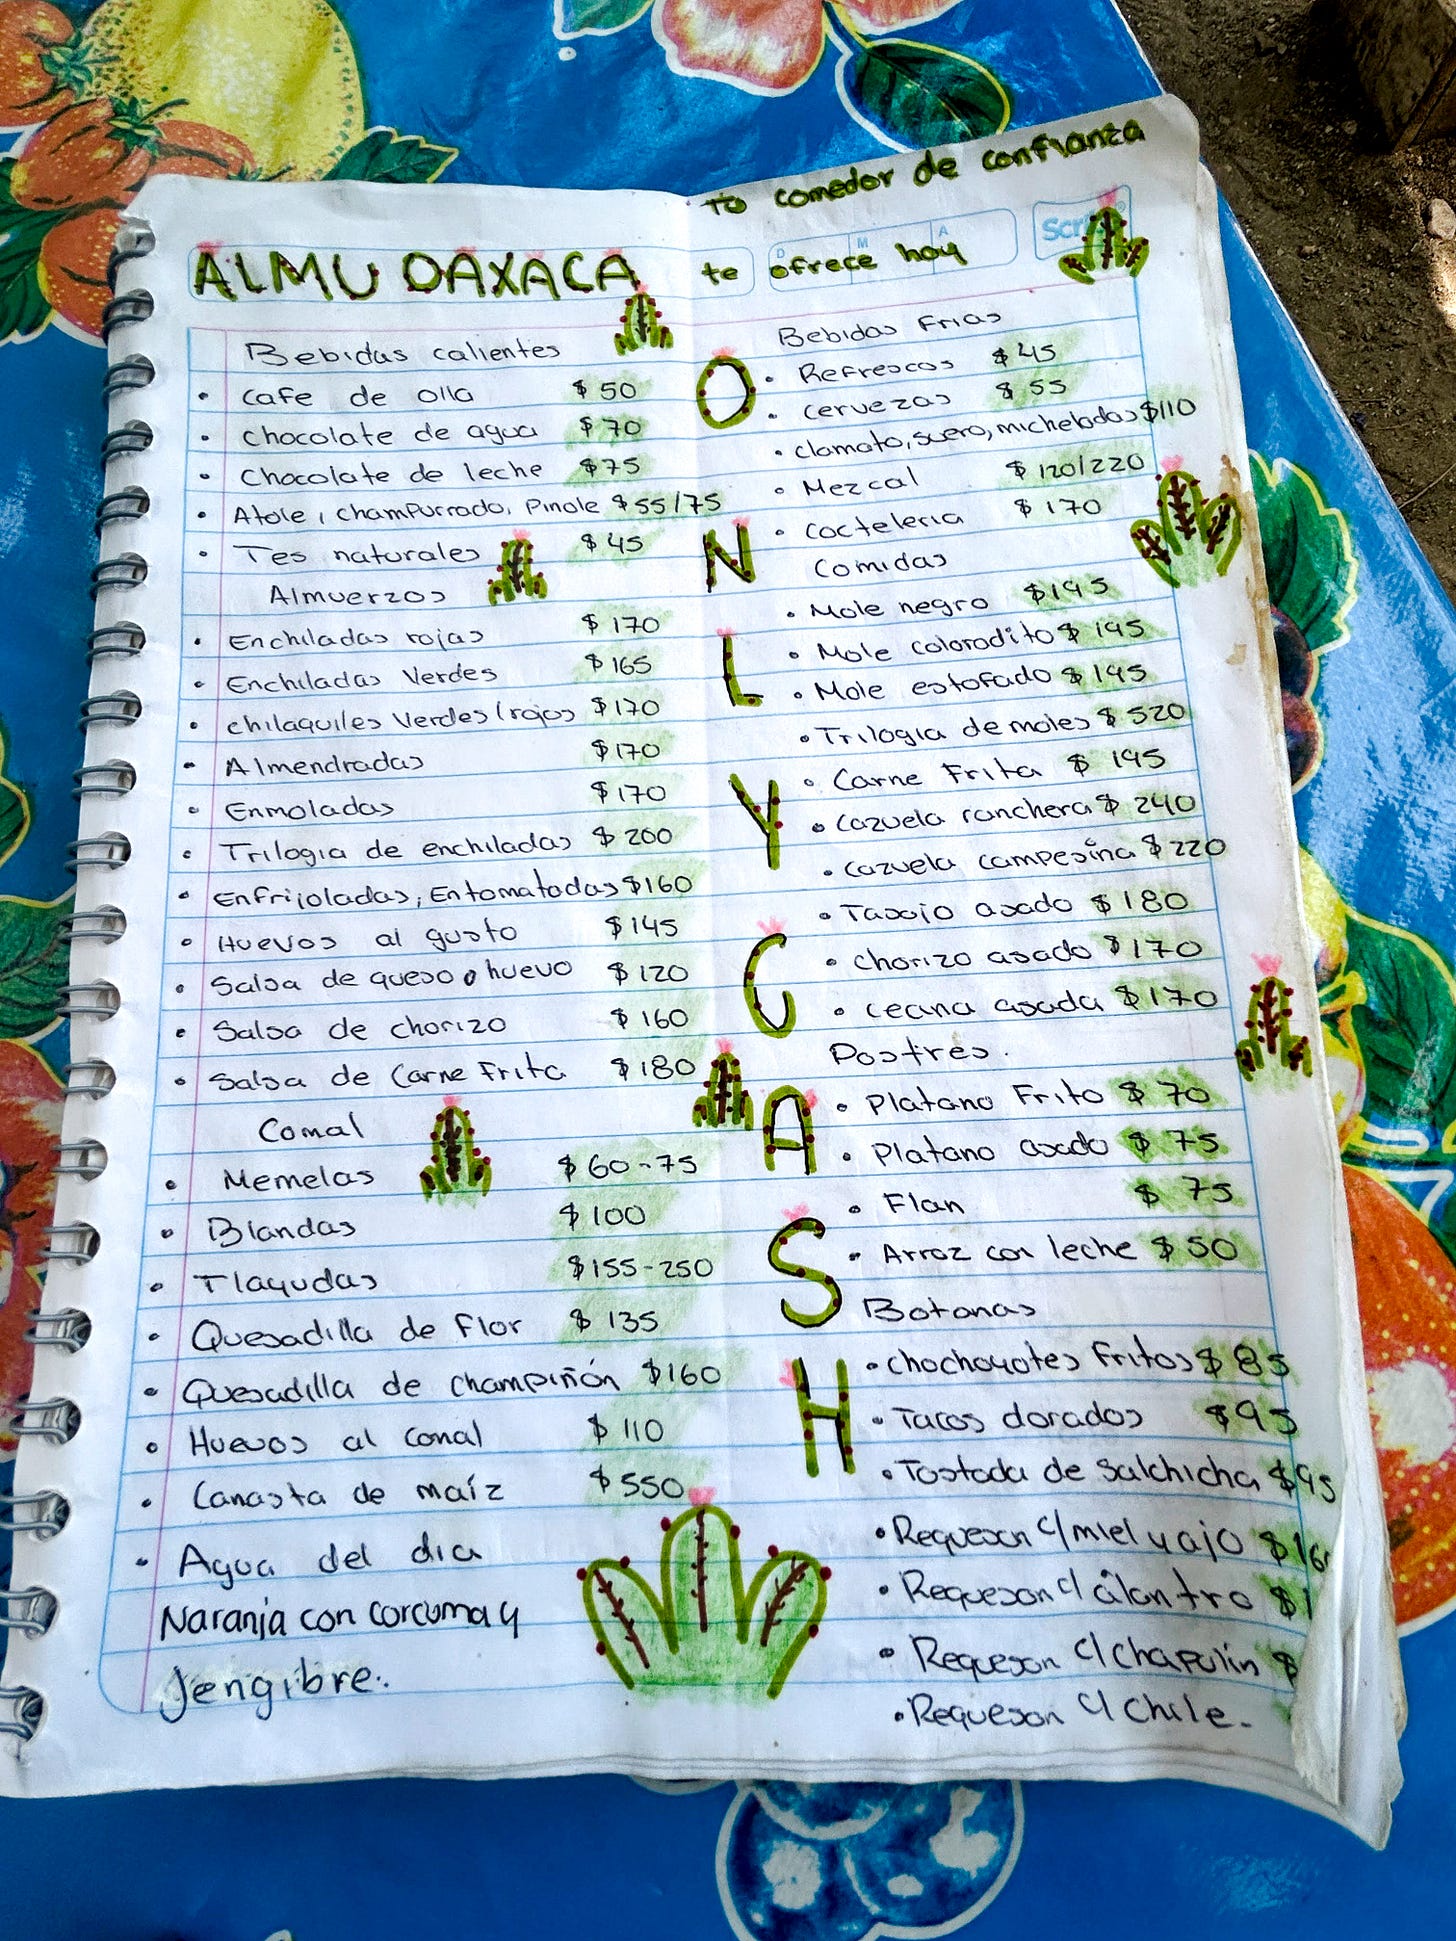 Tu comedor de confianza
ALMU OAXACA te ofrece hoy
Bebidas calientes
• Cafe de olla $50
• Chocolate de agua $70
• Chocolate de leche $75
• Atole, champurrado, Pinole $55/75
• Tes naturales $45
Almuerzos
• Enchiladas rojas $170
• Enchiladas Verdes $165
• chilaquiles Verdes/rojos $170
• Almendradas $170
• Enmoladas $170
• Trilogia de enchiladas $200
• Enfrijoladas, Entomatadas $160
• Huevos al gusto $145
• Salsa de queso o huevo $120
• Salsa de chorizo $160
• Salsa de Carne Frita $180
Comal
• Memelas $60-75
• Blandas $100
• Tlayudas $155-250
• Quesadilla de Flor $135
• Quesadilla de champiñón $160
• Huevos al comal $110
• Canasta de maíz $550
• Agua del dia
Naranja con corcuma y
Jengibre.
ONLY CASH
Bebidas Frias
• Refrescos $45
• cervezas $55
• clamato, suero, micheladas $110
• Mezcal $120/220
• cocteleria $170
Comidas
• Mole negro $195
• Mole coloradito $195
• Mole estofado $195
• Trilogia de moles $520
• Carne Frita $195
• cazuela ranchera $240
• cazuela campesina $220
• Tasajo asado $180
• chorizo asado $170
• cecina asada $170
Postres.
• Platano Frito $70
• Platano asado $75
• Flan $75
• Arroz con leche $50
Botanas
• chochoyotes fritos $85
• Tacos dorados $95
• Tostada de salchicha $95
• Requeson c/miel y ajo $16
• Requeson c/ cilantro $1
• Requeson c/ chapulin $
• Requeson c/ chile.